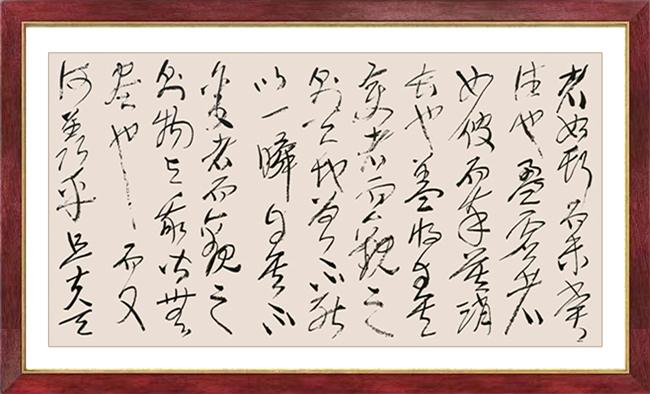 者如斯而未嘗
往也盈虛者
如彼而卒莫消
長也蓋將自其
變者而觀之
則天地曾不能
以一瞬自其不
變者而觀之
則物與我皆無
盡也而又
何羨乎且夫天